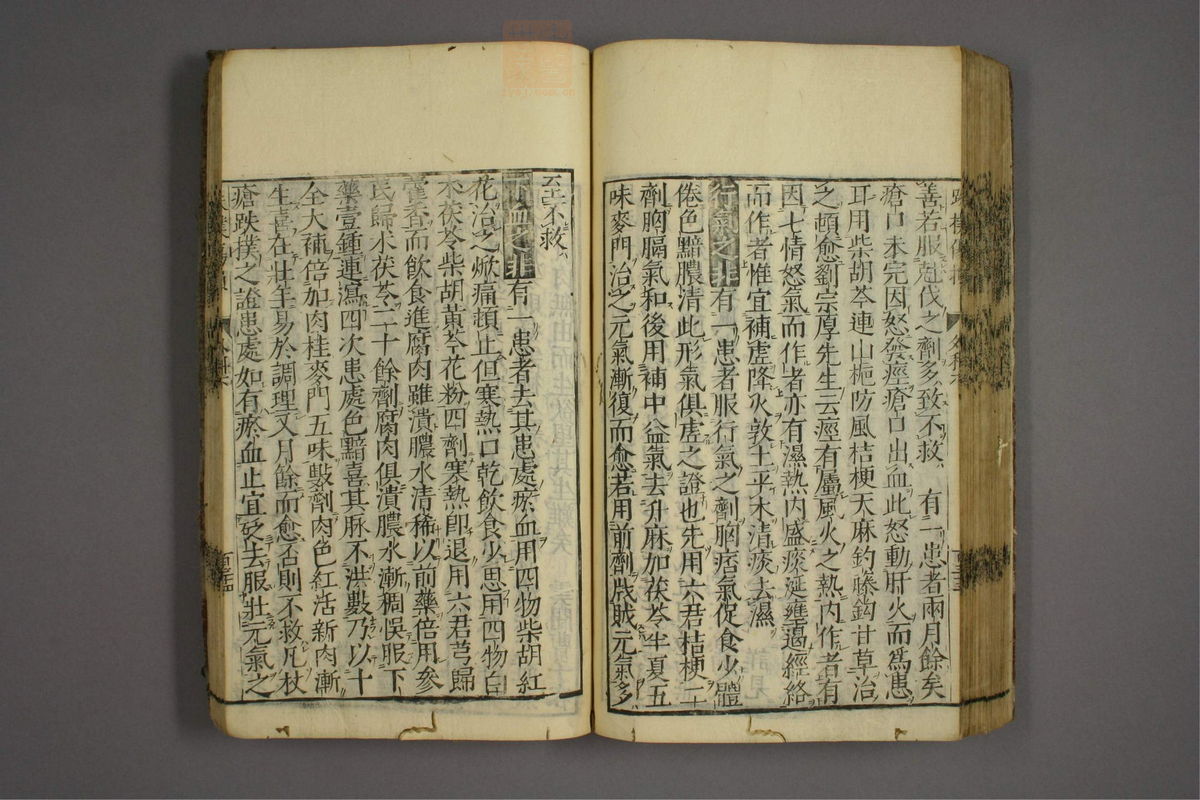 善若服尅伐之劑多致不救　有一患者兩月餘矣
瘡口未完因怒發痙瘡口出血此怒動肝火而爲患
耳用柴胡芩連山梔防風桔梗天麻鈎藤鈎甘草治
之頓愈劉宗厚先生云痙有屬風火之熱內作者有
因七情怒氣而作者亦有濕熱內盛痰涎壅遏經絡
而作者惟宜補虛降火敦土平木清痰去濕
行氣之非有一患者服行氣之劑胸痞氣促食少體
倦色黯膿清此形氣俱虛之證也先用六君桔梗二
劑胸膈氣和後用補中益氣去升麻加茯苓半夏五
味麥門治之元氣漸復而愈若用前劑戕賊元氣多
至不救
下血之非有一患者去其患處瘀血用四物柴胡紅
花治之焮痛頓止但寒熱口乾飲食少思用四物白
朮茯苓柴胡黃芩花粉四劑寒熱卽退用六君芎歸
藿香而飲食進腐肉雖潰膿水清稀以前藥倍用參
芪歸朮茯苓二十餘劑腐肉俱潰膿水漸稠悞服下
藥壹鍾連瀉四次患處色黯喜其脉不洪數乃以十
全大補倍加肉桂麥門五味數劑肉色紅活新肉漸
生喜在壯年易於調理又月餘而愈否則不救凡杖
瘡跌撲之證患處如有瘀血止宜砭去服壯元氣之